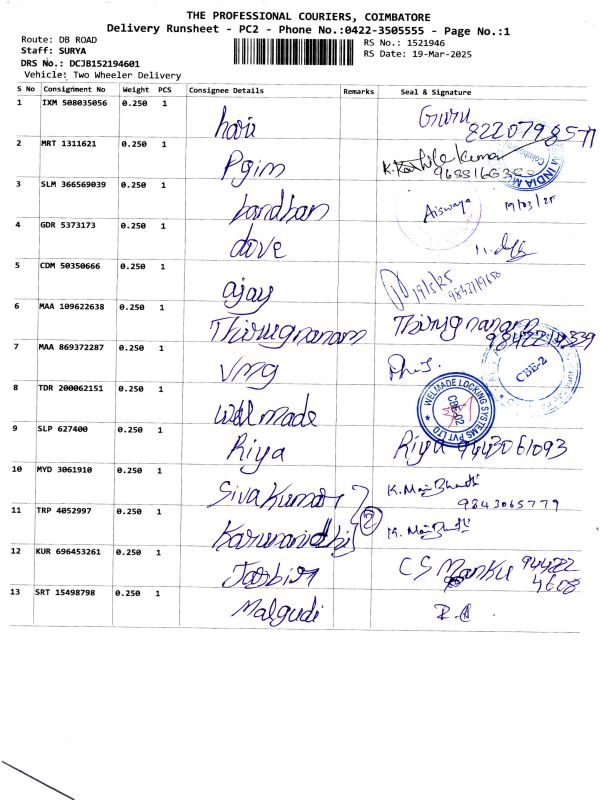 THE PROFESSIONAL COURIERS, COIMBATORE
Delivery Runsheet - PC2 - Phone No.:0422-3505555 - Page No.:1
Route: DB ROAD
RS No.: 1521946
Staff: SURYA
RS Date: 19-Mar-2025
DRS No.: DCJB152194601
Vehicle: Two Wheeler Delivery
S No Consignment No Weight PCS Consignee Details Remarks Seal & Signature
1 IXM 508035056 0.250 1 hari Guru
8220798577
2 MRT 1311621 0.250 1 Pgim K. Karthile kumar
3 SLM 366569039 0.250 1 bandhan Aiswaya 19/03/25
4 GDR 5373173 0.250 1 dove
5 CDM 50350666 0.250 1 ajay
6 MAA 109622638 0.250 1 Thirugnanam Thirugnanam
7 MAA 869372287 0.250 1 Vmg
CBE-2
8 TDR 200062151 0.250 1 Wellmade WELMADE LOCKING SYSTEMS PVT LTD CBE-02
9 SLP 627400 0.250 1 Riya Riya 9443061093
10 MYD 3061910 0.250 1 Sivakumar K. Mani Bharathi
9843065779
11 TRP 4052997 0.250 1 Karunanidhi 2 K. Mani Bharathi
12 KUR 696453261 0.250 1 CS Manku 94422
4608
13 SRT 15498798 0.250 1 Malgudi